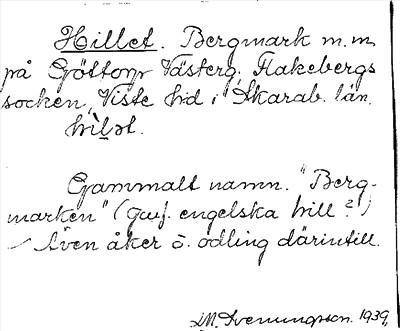 Hillet. Bergmark m.m.
på Göttorp Västerg, Flakebergs
socken, Viste hd i Skarab. län.
hìlət.
Gammalt namn. "Berg-
marken" (jmf. engelska hill?)
Även åker o. odling därintill.
M. Svenungsson. 1939.